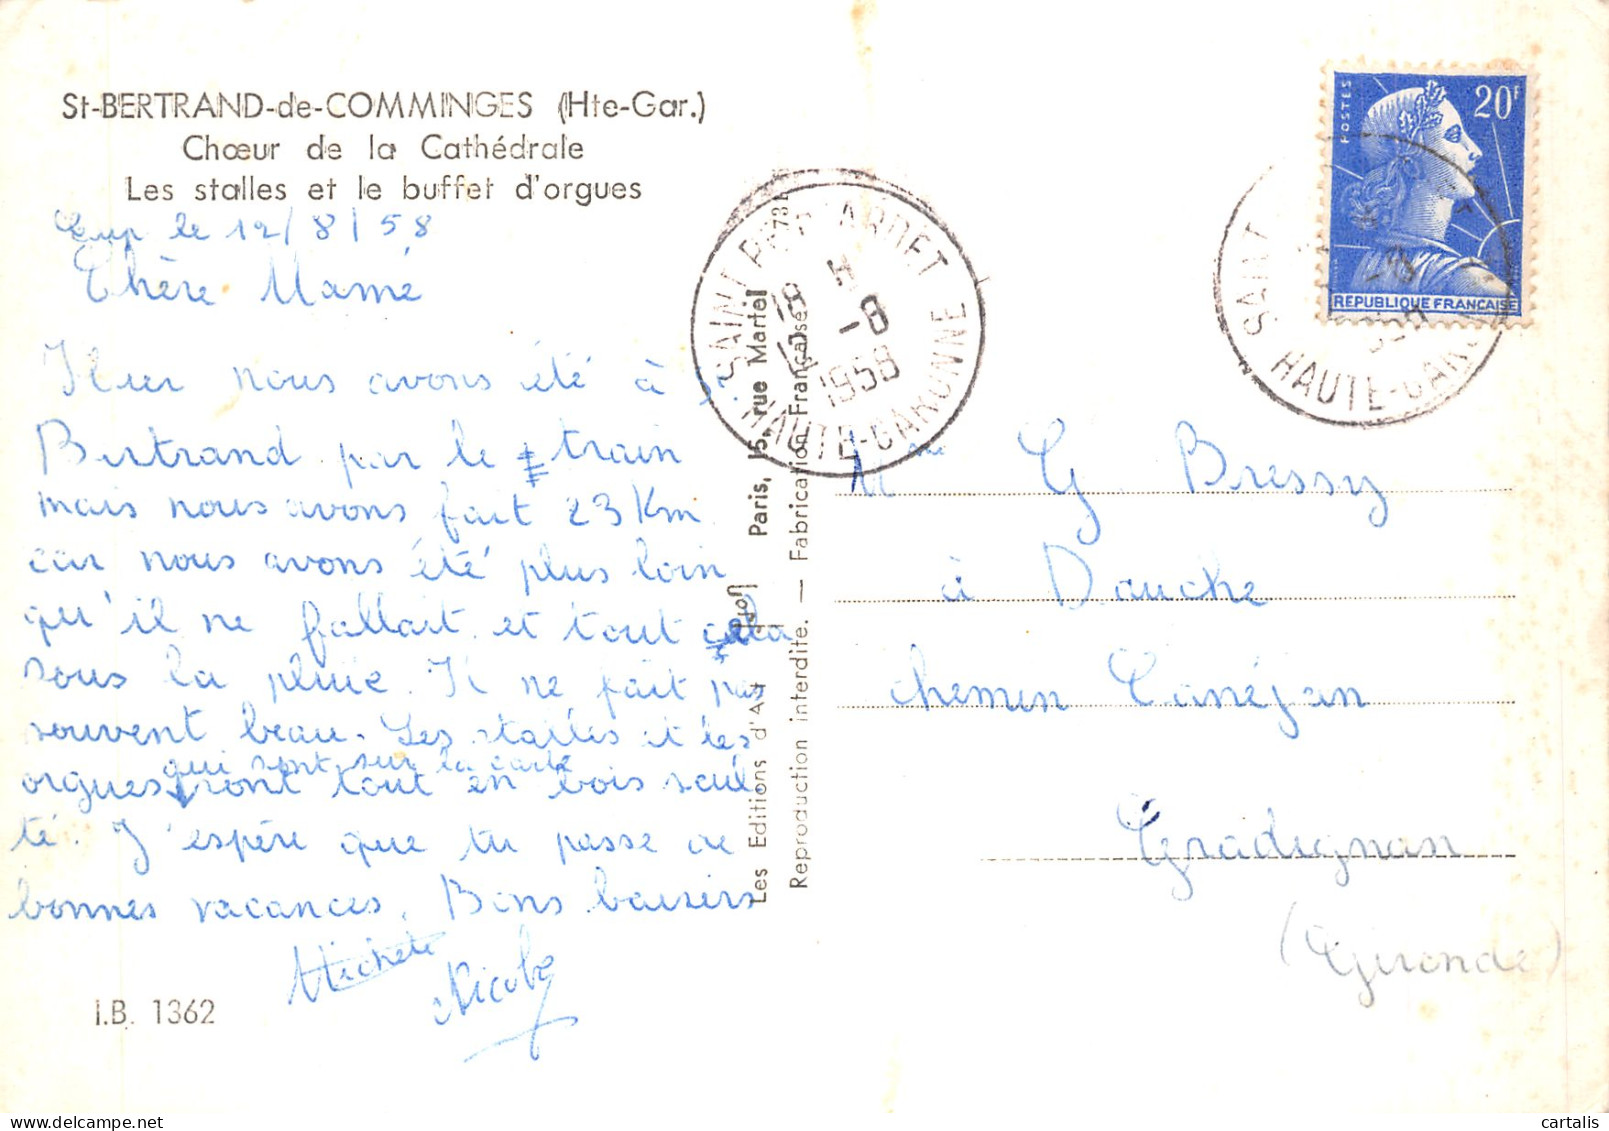 St-BERTRAND-de-COMMINGES (Hte-Gar.)
Chœur de la Cathédrale
Les stalles et le buffet d'orgues
le 12/8/58
Chère Mamé
Hier nous avons été à St
Bertrand par le train
mais nous avons fait 23 Km
car nous avons été plus loin
qu'il ne fallait et tout cela
sous la pluie. Il ne fait pas
souvent beau. Les stalles et les
qui sont sur la carte
orgues sont tout en bois scul
té. J'espère que tu passe de
bonnes vacances. Bons baisers
Michele
Nicole
I.B. 1362
Les Editions d'Art Yvon Paris, 15, rue Martel
Reproduction interdite. — Fabrication Française
18 H
12 -8
1958
HAUTE-GARONNE
POSTES
20F
REPUBLIQUE FRANÇAISE
SAINT
HAUTE-GARONNE
Mme G. Bressy
à Dauche
chemin Canéjan
Gradignan
(Gironde)
cartalis